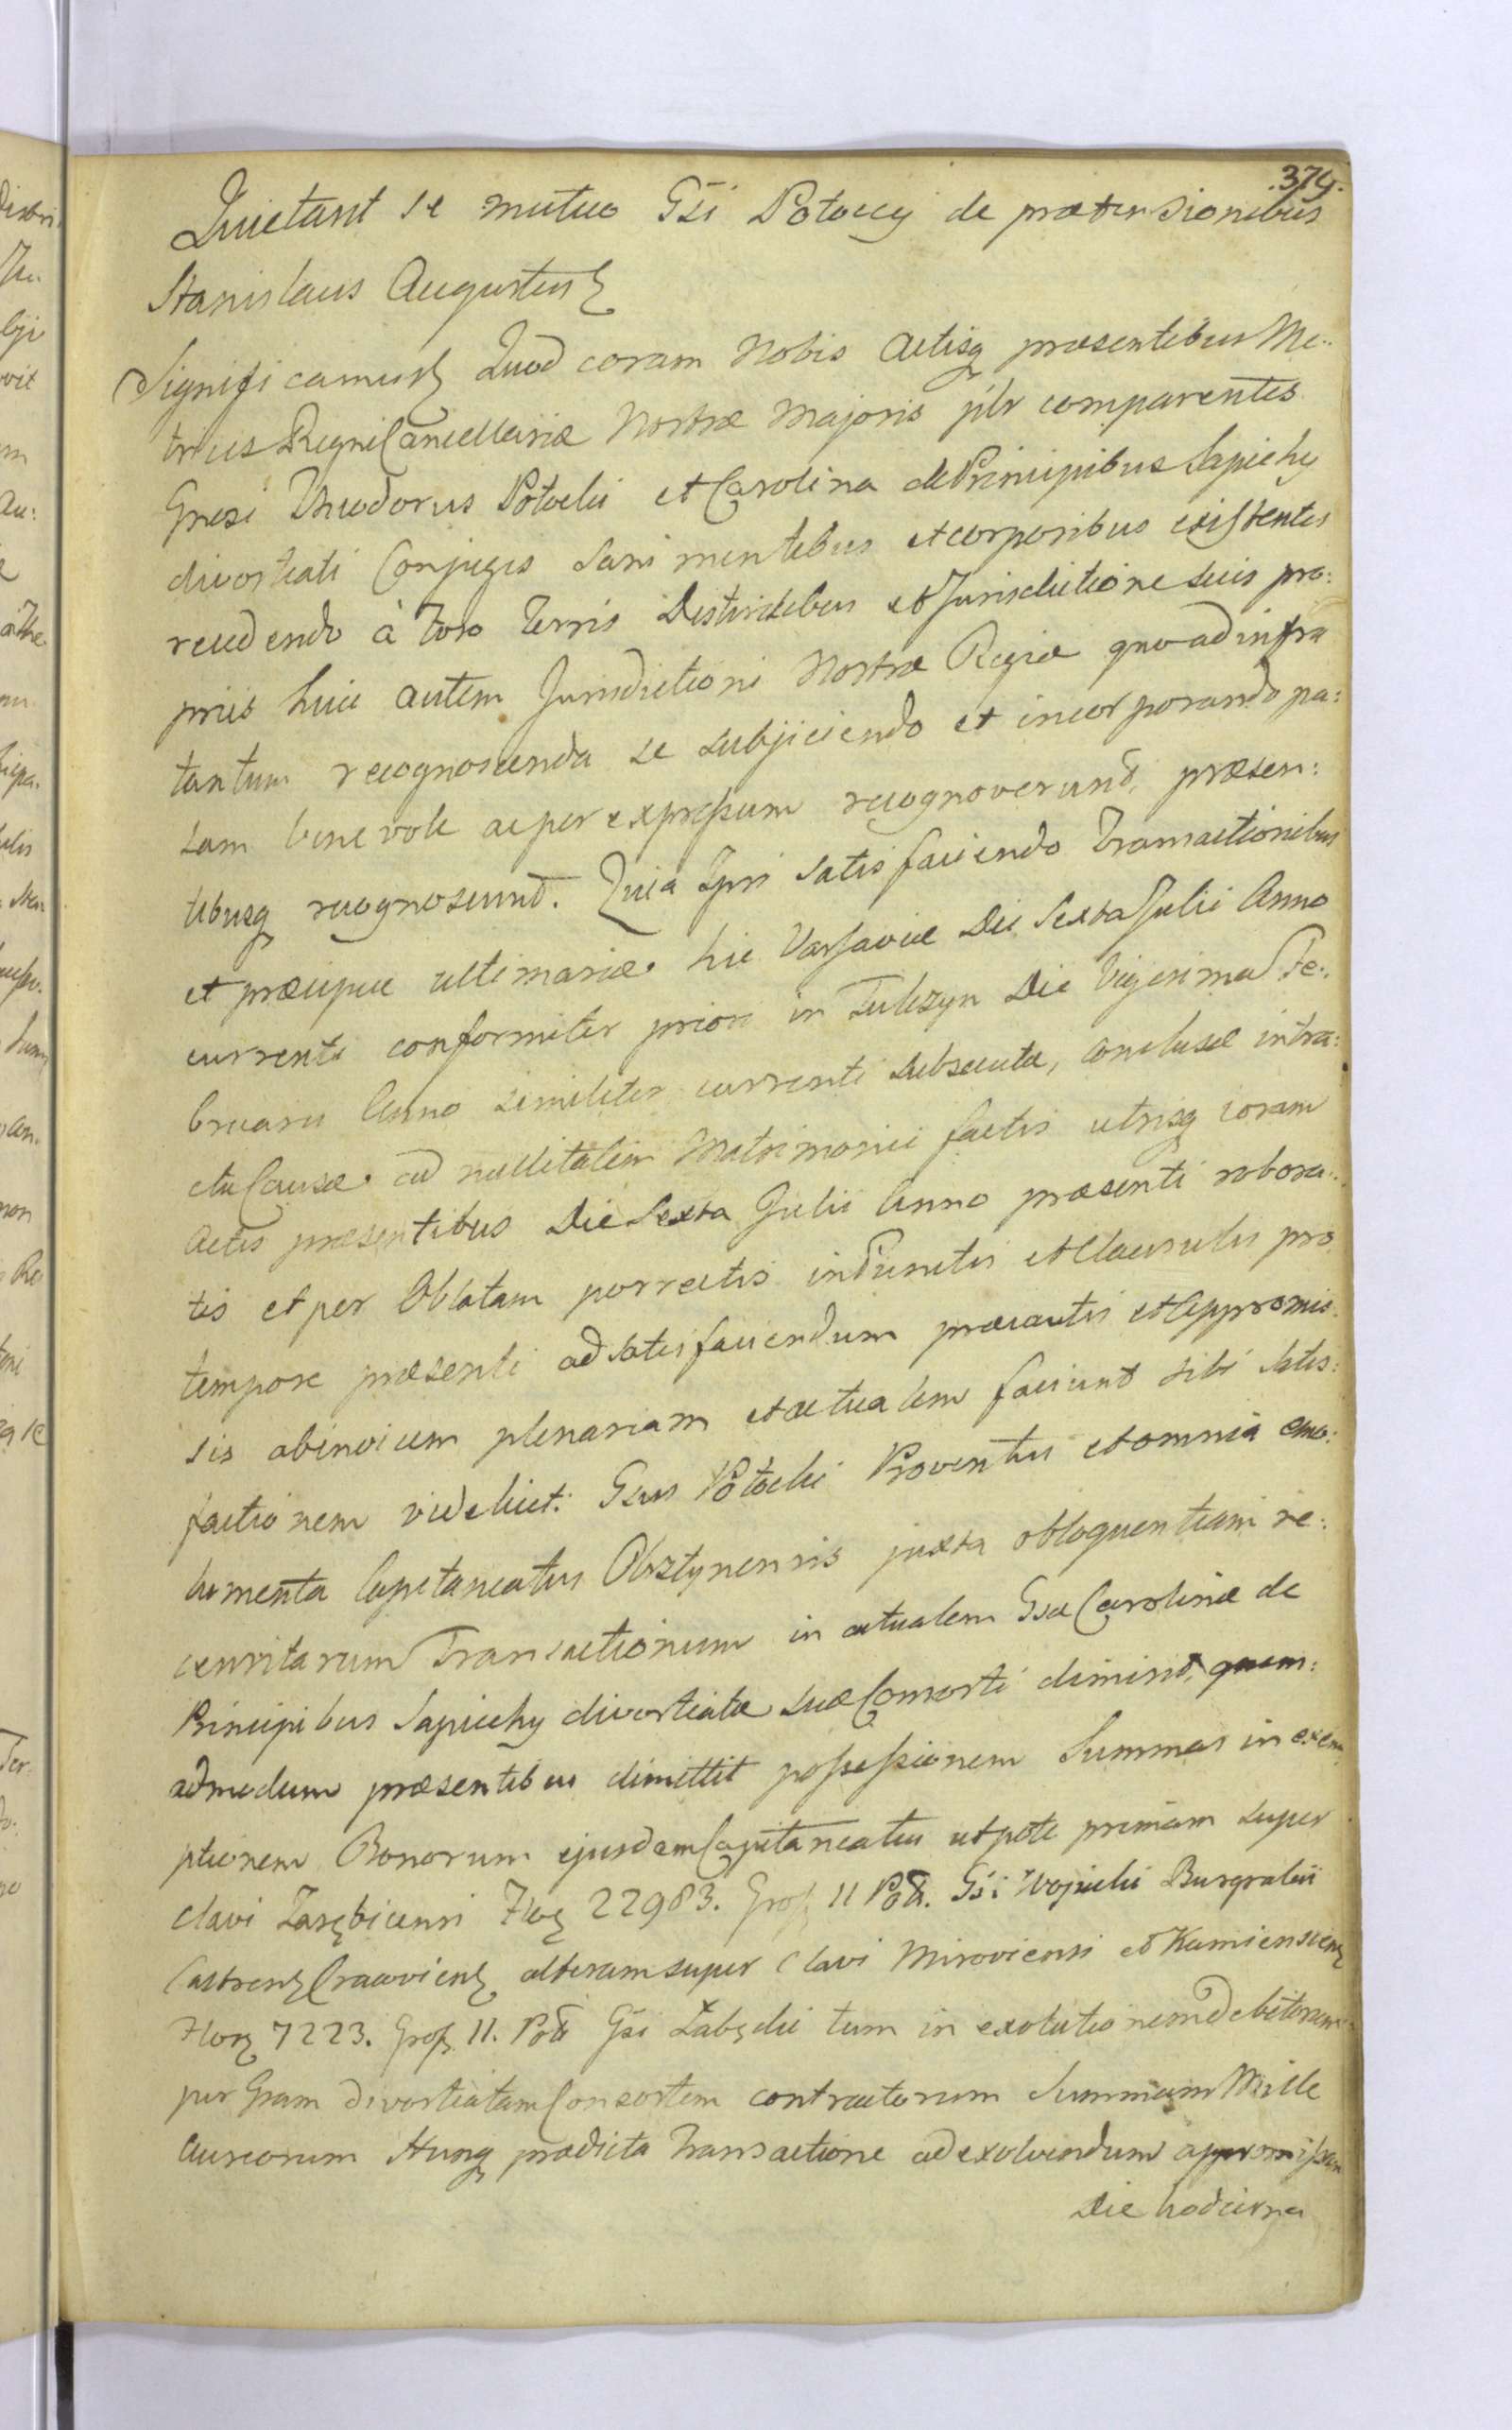 .379.
Quietant se mutuo Gsi Potoccy de prætensionibus
Stanislaus Augustus
Significamus Quod coram Nobis Actisq præsentibus Me..
trices Regni Cancellariæ Nostræ Majoris plr comparentes
Gnosi Theodorus Potocki et Carolina de Principibus Sapiehy
divortiati Conjuges Sani mentibus et corporibus existentes
recedendo à Foro Terris Districtibus et Jurisdictione suis pro:
priis huic autem Jurisdictioni Nostræ Regiæ quo ad infra
tantum recognoscenda se subjiciendo et incorporando pa:
lam benevole ac per expressum recognoverunt, præsen:
tibusq recognoscunt. Quia Ipsi satisfaciendo Transactionibus
et præcipue ultimariæ hic Varsaviæ Die Sexta Julii Anno
currenti conformiter priori in Tulczyn Die Vigesima Fe:
bruarii Anno similiter currenti subsecutæ, conclusæ intra:
ctu Causæ ad nullitatem Matrimonii factis utrisq coram
Actis præsentibus Die Sexta Julii Anno præsenti robora:
tis et per Oblatam porrectis in Punctis et Clausulis pro
tempore præsenti ad satisfaciendum præcautis et appromis:
sis abinvicem plenariam et actualem faciunt sibi satis:
factionem videlicet: Gsus Potocki Proventus et omnia emo:
lumenta Capitaneatus Olsztynensis juxta obloquentiam re:
censitarum Transactionum in actualem Gsæ Carolinæ de
Principibus Sapiehy divortiatæ suæ Consorti dimisit, quem:
admodum præsentibus dimittit possessionem Summas in exem
ptionem Bonorum ejusdem Capitaneatus utpote primam super
clavi Zarębicensi Flor 22983. Gros 11 Pol. Gsi Wojucki Burgrabii
Castrens Cracoviens alteram super Clavi Miroviensi et Kamiensciens
Flor 7223. Gros 11. Pol Gsi Łabęcki tum in exolutionem debitorum
per Gsam divortiatam Consortem contractorum Summam Mille
Aureorum Hung prædicta Transactione ad exolvendum appromissam
Die hodierna